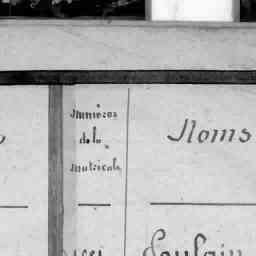 Numéros
de la
matricule
Noms
Poulain